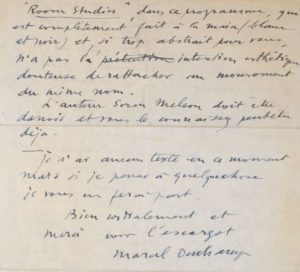 "Room Studies", dans ce programme, qui
est complètement fait à la main (blanc
et noir) et si trop abstrait pour vous,
n'a pas la prétention intention esthétique
douteuse de rattacher au mouvement
du même nom.
L'auteur Soren Melson doit être
danois et vous le connaissez peut être
déja.
je n'ai aucun texte en ce moment
mais si je pense à quelquechose
je vous en ferai part.
Bien cordialement et
merci pour l'escargot
Marcel Duchamp